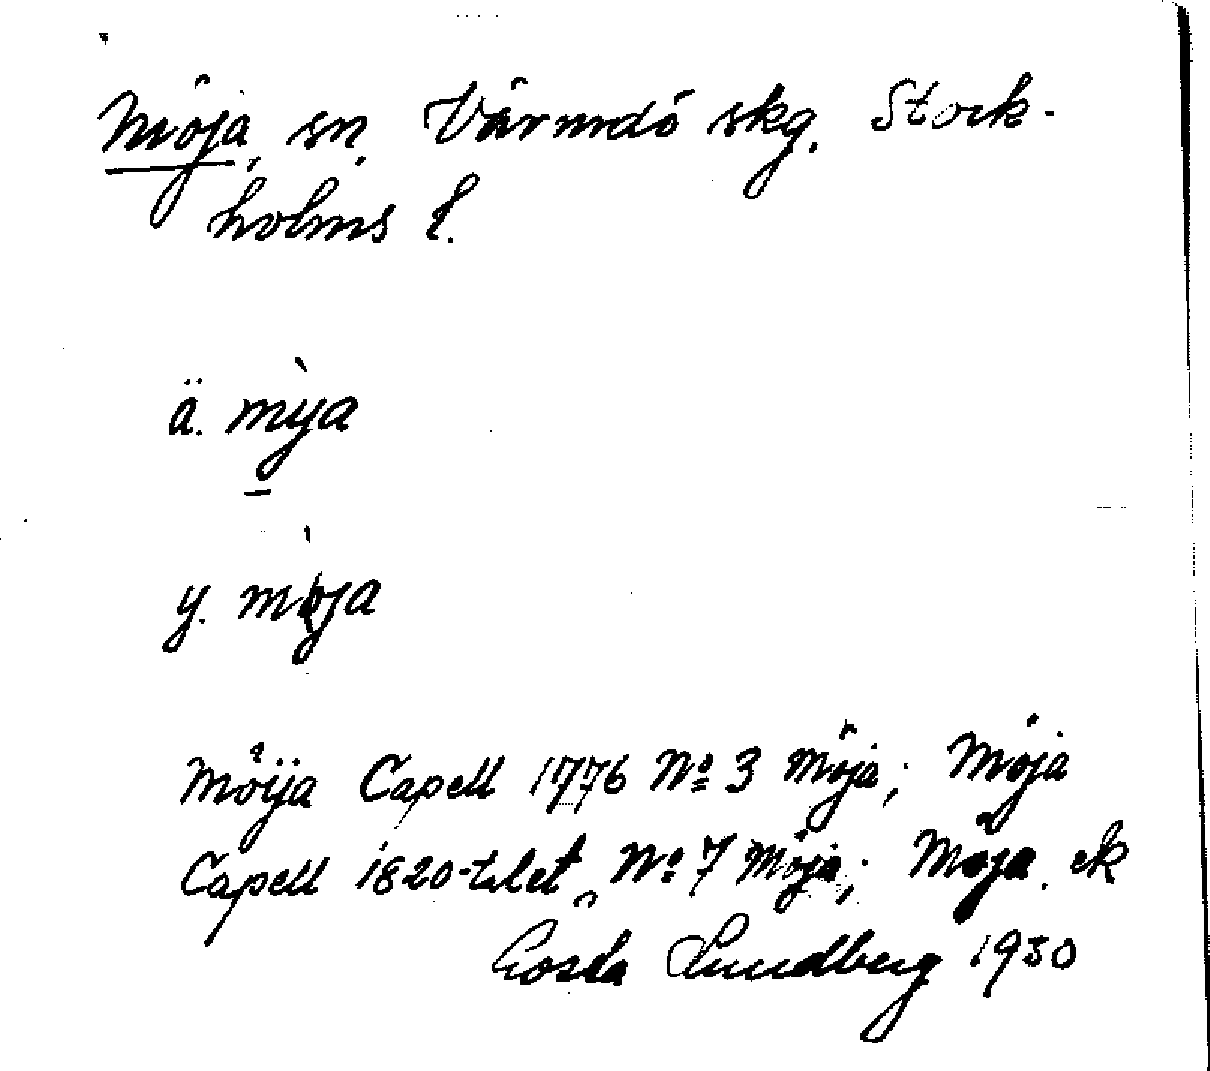 Möja, sn, Värmdö skg. Stock-
holms l.
ä. mỳja
y. mòja
Möija Capell 1776 No 3 Möja; Möja
Capell 1820-talet, No 7 Möja; Möja ek
Gösta Lundberg 1930